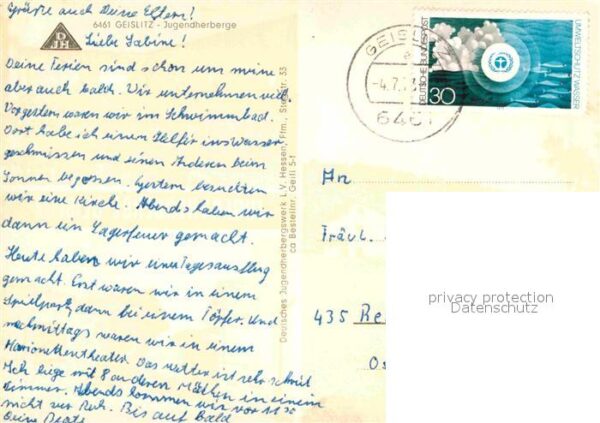 Grüße auch Deine Eltern!
6461 GEISLITZ - Jugendherberge
DJH
Liebe Sabine!
Deine Ferien sind schon um meine
aber auch bald. Wir unternehmen viel.
Vorgestern waren wir im Schwimmbad.
Dort habe ich einen Helfer ins Wasser
geschmissen und einen Anderen beim
Sonnen begossen. Gestern besuchten
wir eine Kirche. Abends haben wir
dann ein Lagerfeuer gemacht.
Heute haben wir einen Tagesausflug
gemacht. Erst waren wir in einem
Spielpark, dann bei einem Töpfer. Und
nachmittags waren wir in einem
Marionettentheater. Das Wetter ist sehr
Ich liege mit 8 anderen Mädchen in einem
Zimmer. Abends kommen wir vor 11 30
nicht zur Ruh. Bis auf Bald
Deine Beate
Deutsches Jugendherbergswerk L.V. Hessen, Ffm., 33
ca Bestellnr. Geisl 5-f
GEISL
-4.7.73
6461
DEUTSCHE BUNDESPOST
30
UMWELTSCHUTZ WASSER
An
Fräul.
435 Re
Os
privacy protection
Datenschutz